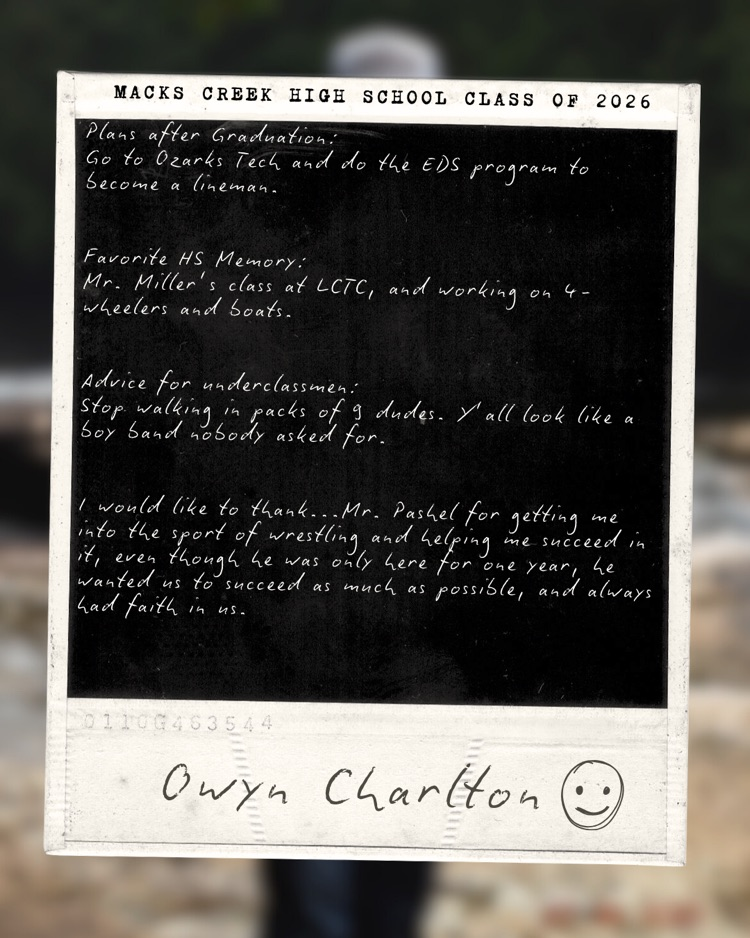 MACKS CREEK HIGH SCHOOL CLASS OF 2026
Plans after Graduation:
Go to Ozarks Tech and do the EDS program to
become a lineman.
Favorite HS Memory:
Mr. Miller's class at LCTC, and working on 4-
wheelers and boats.
Advice for underclassmen:
Stop walking in packs of 9 dudes. Y'all look like a
boy band nobody asked for.
I would like to thank...Mr. Pashel for getting me
into the sport of wrestling and helping me succeed in
it, even though he was only here for one year, he
wanted us to succeed as much as possible, and always
had faith in us.
0110G463544
Owyn Charlton